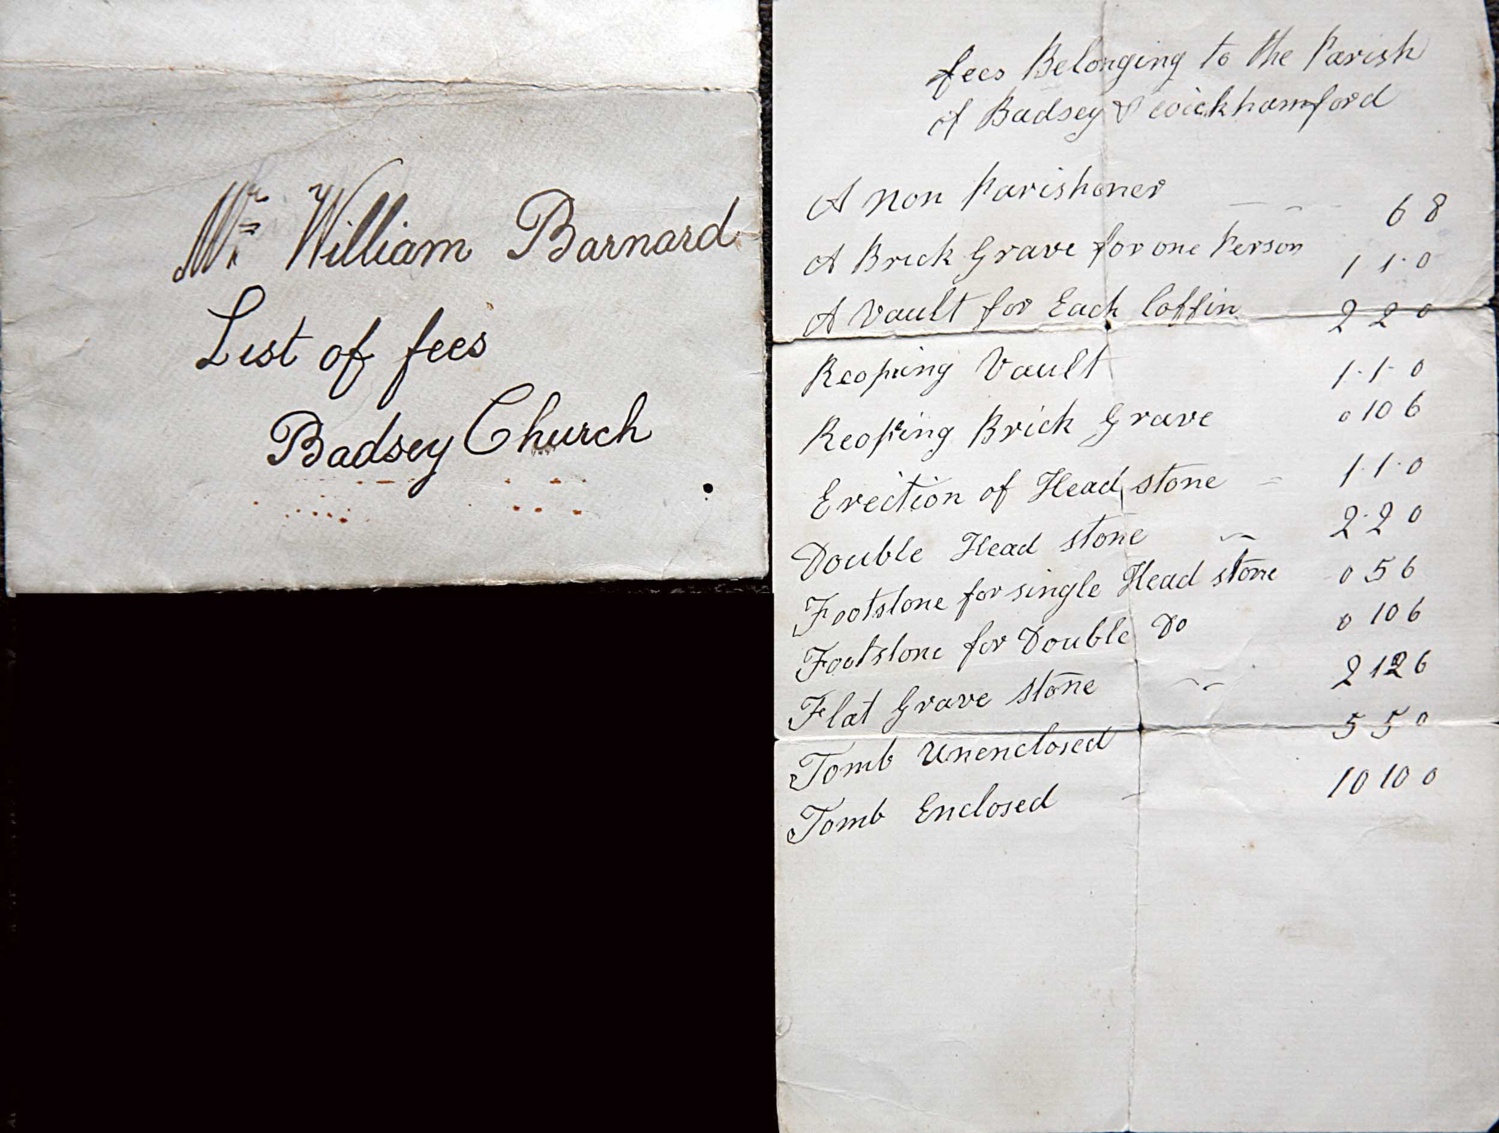 Mr William Barnard
List of fees
Badsey Church
fees Belonging to the Parish
of Badsey & wickhamford
A Non Parishoner 6 8
A Brick Grave for one Person 1 1 0
A Vault for Each Coffin 2 2 0
Reoping Vault 1 1 0
Reoping Brick Grave 0 10 6
Erection of Head stone 1 1 0
Double Head stone 2 2 0
Footstone for single Head stone 0 5 6
Footstone for Double Do 0 10 6
Flat Grave stone 2 12 6
Tomb Unenclosed 5 5 0
Tomb Enclosed 10 10 0